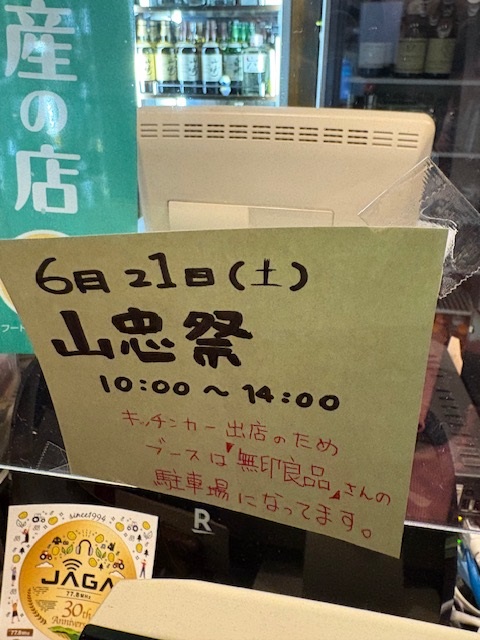 産の店
フード
6月21日(土)
山忠祭
10:00～14:00
キッチンカー出店のため
ブースは『無印良品』さんの
駐車場になってます。
R
since1994
JAGA
77.8MHz
30th
Anniversary